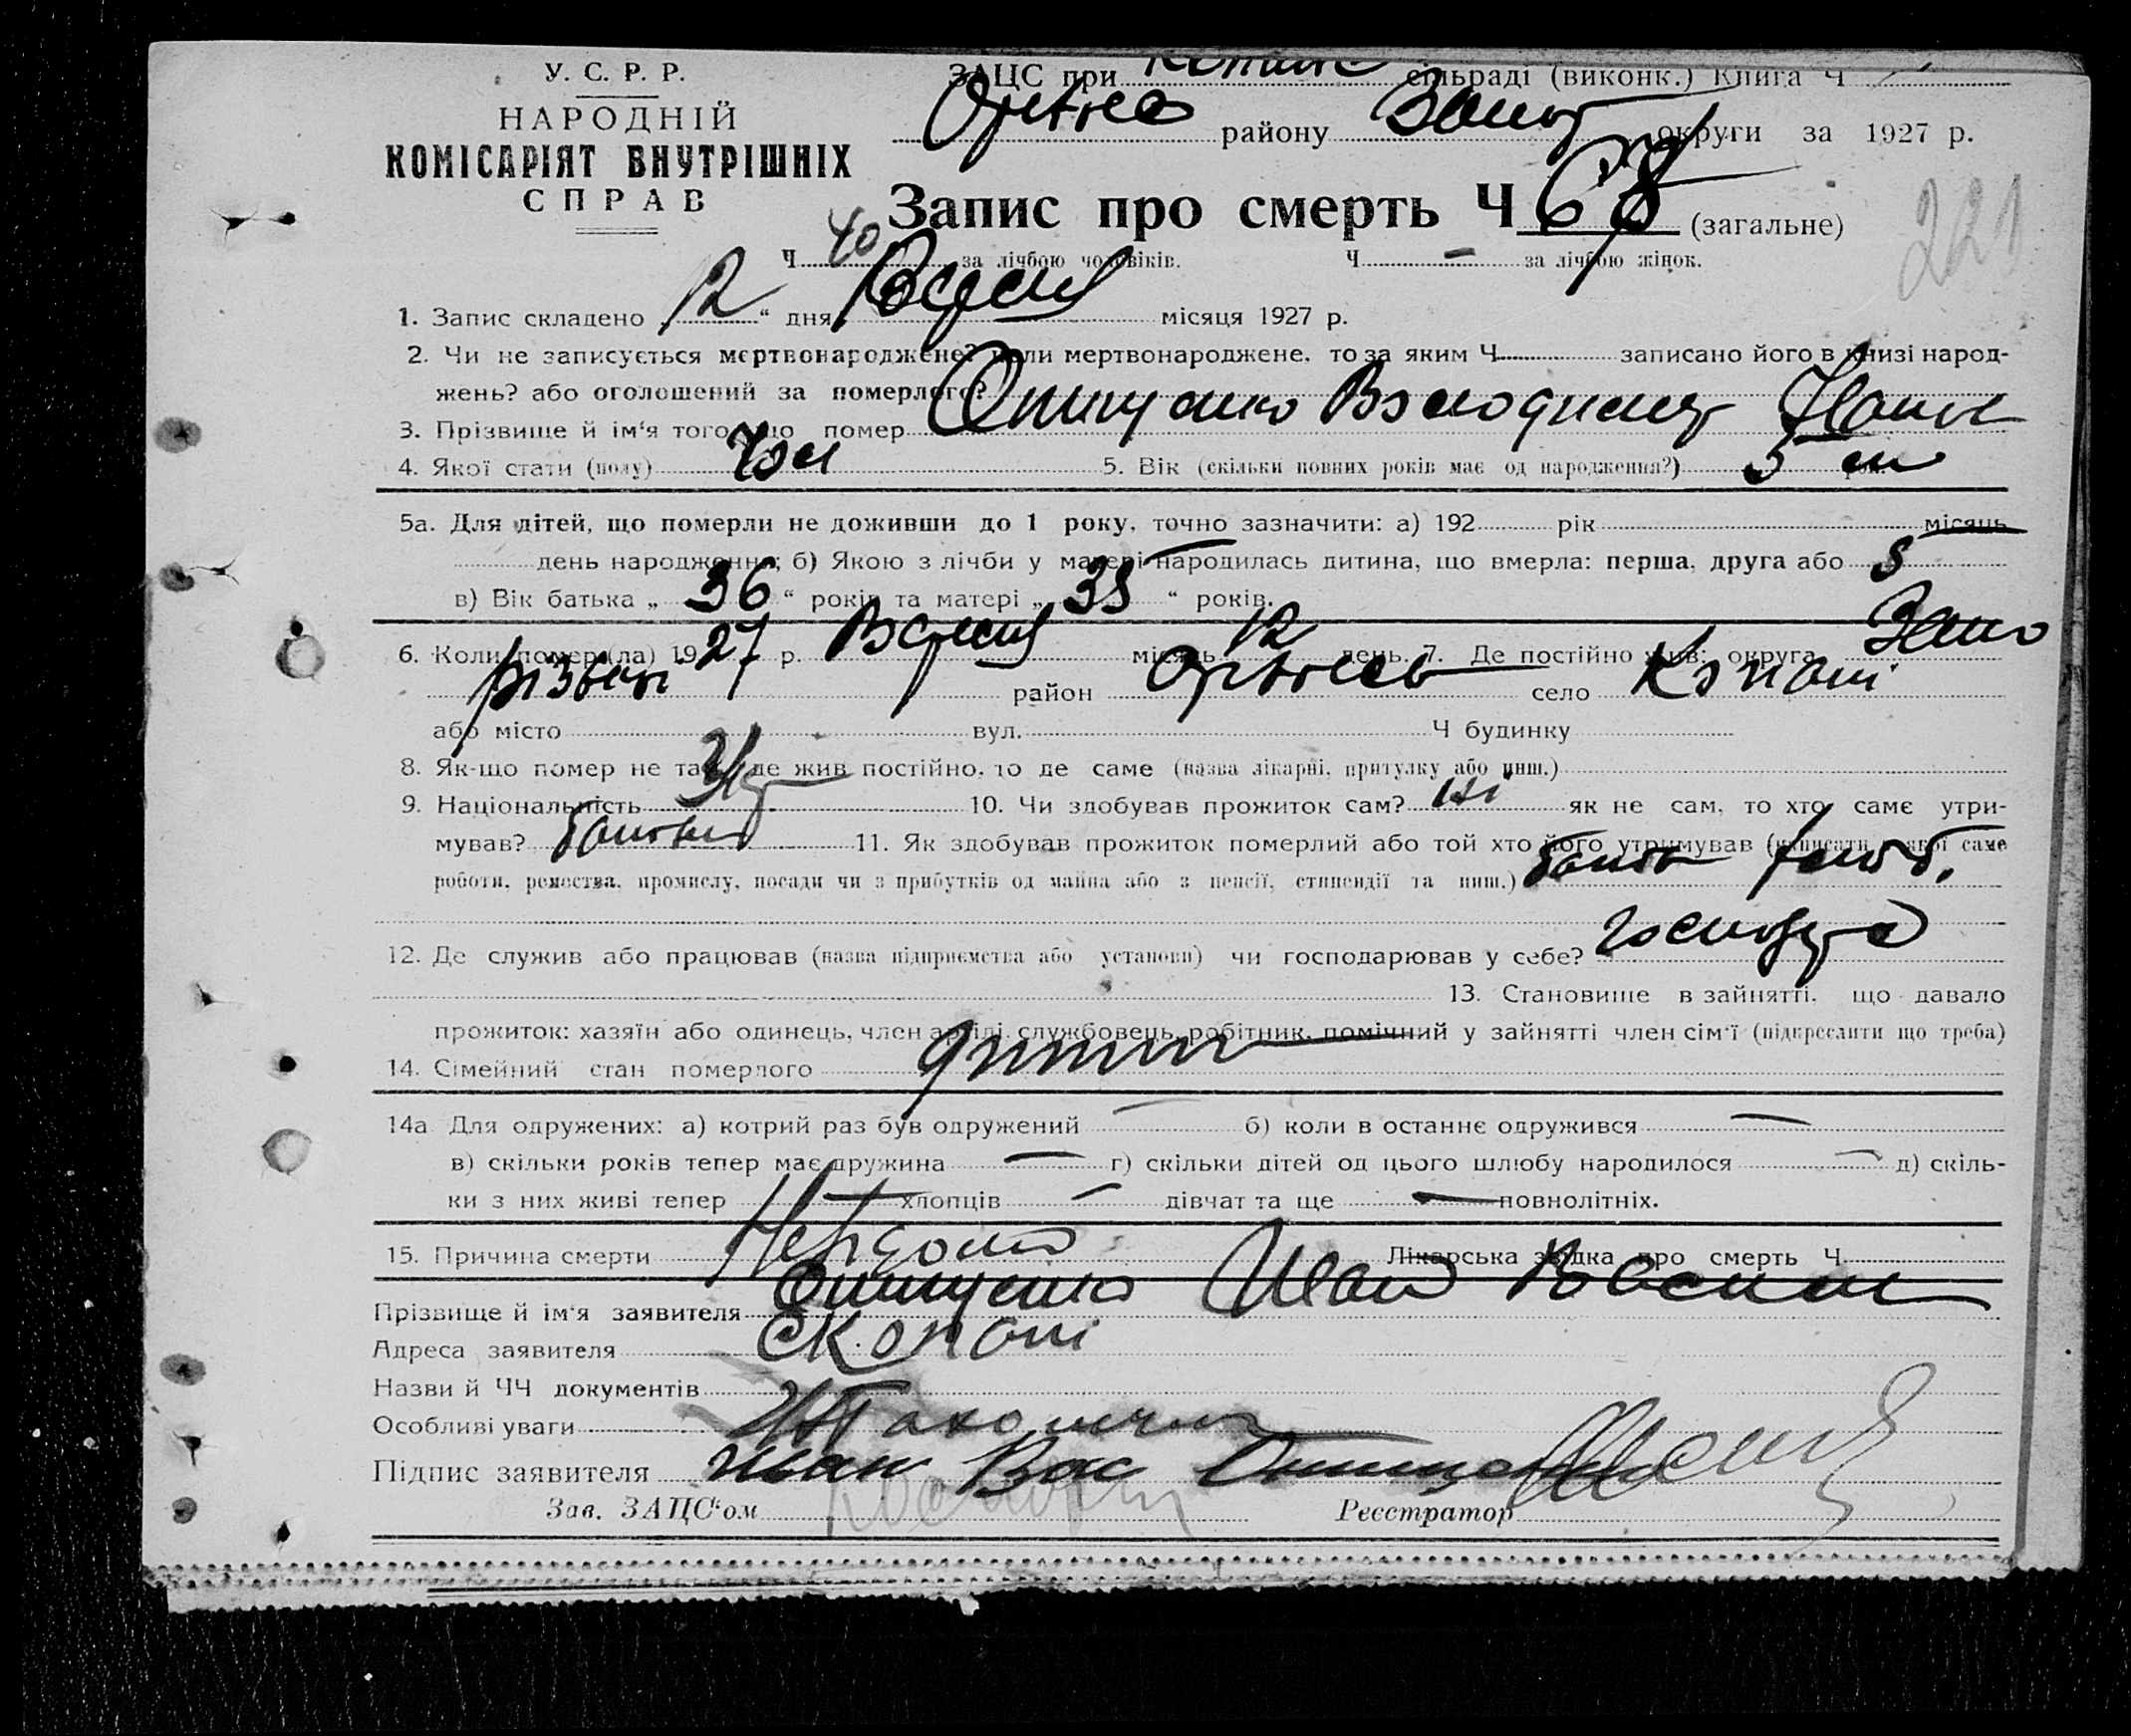 У. С. Р. Р.
НАРОДНІЙ
КОМІСАРІЯТ ВНУТРІШНІХ
СПРАВ
ЗАЦС при сільраді (виконк.) Книга Ч
району округи за 1927 р.
Запис про смерть Ч 68 (загальне)
Ч 40 за лічбою чоловіків. Ч – за лічбою жінок.
221
1. Запис складено „12“ дня Вересня місяця 1927 р.
2. Чи не записується мертвонароджене? Коли мертвонароджене, то за яким Ч записано його в книзі народ-
жень? або оголошений за померлого?
3. Прізвище й ім‘я того, що помер Онищенко Володимир Іванов
4. Якої стати (полу) Чол 5. Вік (скільки повних років має од народження?) 5
5а. Для дітей, що померли не доживши до 1 року, точно зазначити: а) 192 рік місяць
день народження; б) Якою з лічби у матері народилась дитина, що вмерла: перша, друга або 5
в) Вік батька „36“ років та матері „35“ років.
6. Коли помер(ла) 1927 р. Вересня місяць 12 день. 7. Де постійно жив: округа Запо
різької район Оріхівсь село Копані
або місто вул. Ч будинку
8. Як-що помер не там, де жив постійно, то де саме (назва лікарні, притулку або инш.)
9. Національність Укр 10. Чи здобував прожиток сам? Ні як не сам, то хто саме утри-
мував? батьки 11. Як здобував прожиток померлий або той хто його утримував (написати з якої саме
роботи, ремества, промислу, посади чи з прибутків од майна або з пенсії, стипендії та инш.) батько хліб.
12. Де служив або працював (назва підприємства або установи) чи господарював у себе? господар
13. Становище в зайнятті, що давало
прожиток: хазяїн або одинець, член артілі, службовець, робітник, помічний у зайнятті член сім‘ї (підкреслити що треба)
14. Сімейний стан померлого дитина
14а Для одружених: а) котрий раз був одружений – б) коли в останнє одружився –
в) скільки років тепер має дружина – г) скільки дітей од цього шлюбу народилося – д) скіль-
ки з них живі тепер – хлопців – дівчат та ще – повнолітніх.
15. Причина смерти Лікарська звідка про смерть Ч
Прізвище й ім‘я заявителя Онищенко Иван
Адреса заявителя с Копані
Назви й ЧЧ документів
Особливі уваги
Підпис заявителя Иван Вас Онищенко
Зав. ЗАЦС‘ом Реєстратор